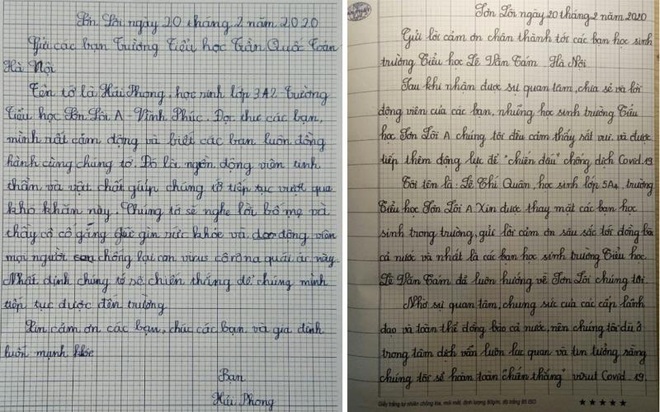 Sơn Lôi ngày 20 tháng 2 năm 2020
Gửi các bạn Trường Tiểu học Trần Quốc Toản
Hà Nội
Tên tớ là Hải Phong, học sinh lớp 3A2 Trường
Tiểu học Sơn Lôi A Vĩnh Phúc. Đọc thư các bạn,
mình rất cảm động và biết các bạn luôn đồng
hành cùng chúng tớ. Đó là nguồn động viên tinh
thần và vật chất giúp chúng tớ tiếp tục vượt qua
khó khăn này. Chúng tớ sẽ nghe lời bố mẹ và
thầy cô cố gắng giữ gìn sức khỏe và động viên
mọi người chống lại con virus côrôna quái ác này.
Nhất định chúng tớ sẽ chiến thắng để chúng mình
tiếp tục được đến trường.
Xin cảm ơn các bạn, chúc các bạn và gia đình
luôn mạnh khỏe
Bạn
Hải Phong
Sơn Lôi ngày 20 tháng 2 năm 2020
Gửi lời cảm ơn chân thành tới các bạn học sinh
trường Tiểu học Lê Văn Tám Hà Nội
Sau khi nhận được sự quan tâm, chia sẻ và lời
động viên của các bạn, những học sinh trường Tiểu
học Sơn Lôi A chúng tôi đều cảm thấy rất vui và được
tiếp thêm động lực để "chiến đấu" chống dịch Covid.19
Tôi tên là Lê Thị Quân học sinh lớp 5A4 trường
Tiểu học Sơn Lôi A Xin được thay mặt các bạn học
sinh trong trường, gửi lời cảm ơn sâu sắc tới đồng bào
cả nước và nhất là các bạn học sinh trường Tiểu học
Lê Văn Tám đã luôn hướng về Sơn Lôi chúng tôi
Nhờ sự quan tâm, chung sức của các cấp lãnh
đạo và toàn thể đồng bào cả nước, nên chúng tôi dù ở
trong tâm dịch vẫn luôn lạc quan và tin tưởng rằng
chúng tôi sẽ hoàn toàn "chiến thắng" virut Covid.19.